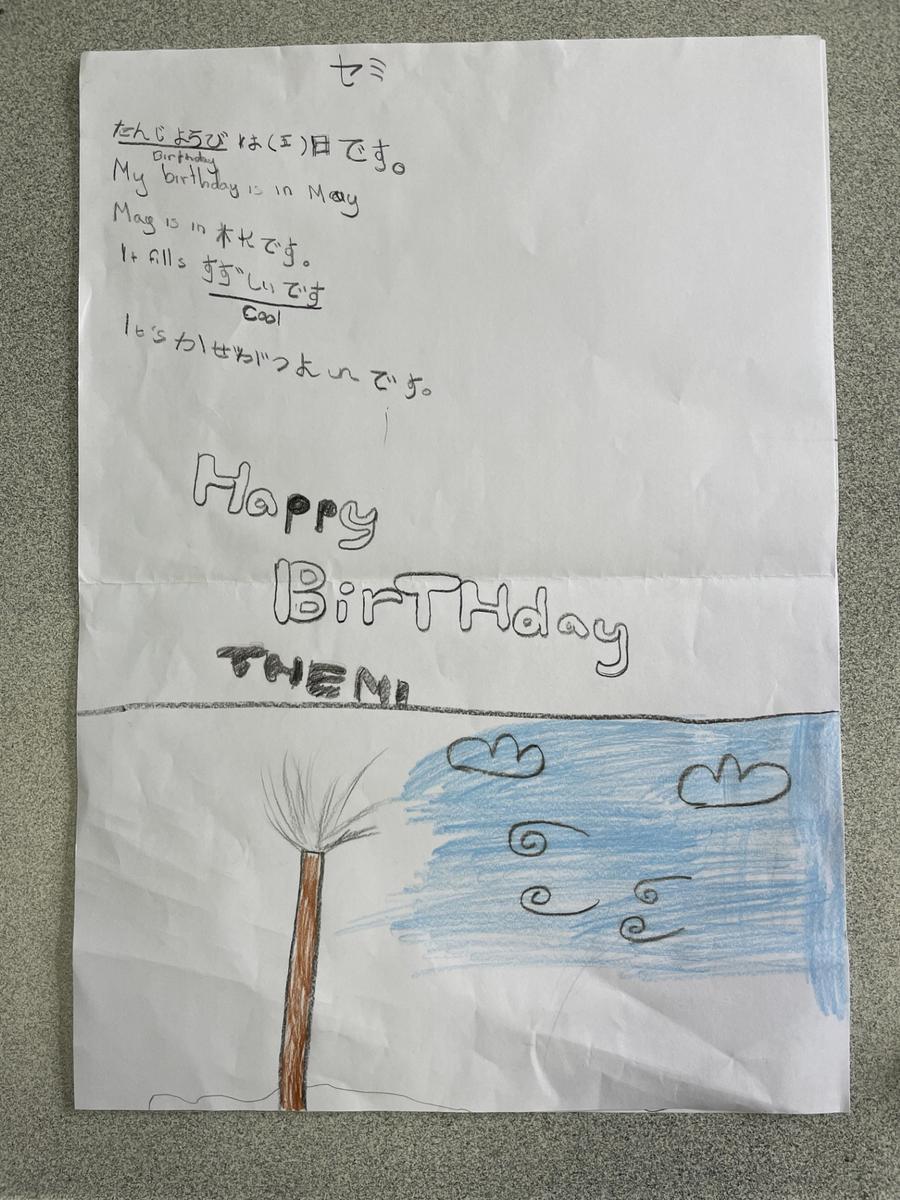 セミ
たんじようび は(五)日です。
Birthday
My birthday is in May
May is in 木K です。
It fills すずしいです
Cool
It's かせがつよいです。
Happy
BirTHday
THEMI